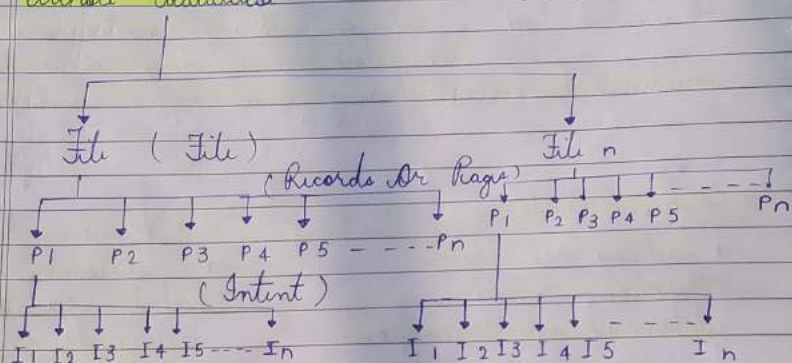 File ( File ) File n
( Records Or Pages )
P1 P2 P3 P4 P5 - - - - Pn P1 P2 P3 P4 P5 - - - - Pn
( Intent )
I1 I2 I3 I4 I5 - - - - In I1 I2 I3 I4 I5 - - - - In